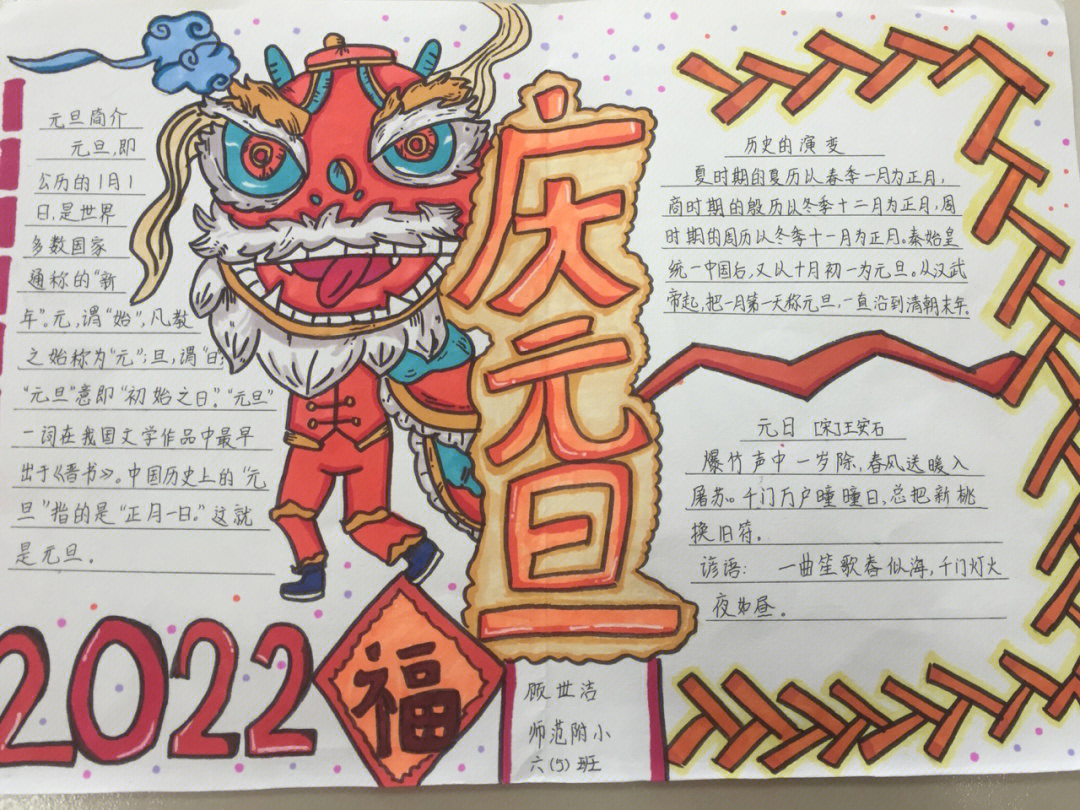 元旦简介
元旦,即
公历的1月1
日,是世界
多数国家
通称的“新
年”。元,谓“始”,凡数
之始称为“元”;旦,谓“日;
“元旦”意即“初始之日”。“元旦”
一词在我国文学作品中最早
出于《晋书》。中国历史上的“元
旦”指的是“正月一日。”这就
是元旦。
庆元旦
历史的演变
夏时期的夏历以春季一月为正月,
商时期的殷历以冬季十二月为正月,周
时期的周历以冬季十一月为正月。秦始皇
统一中国后,又以十月初一为元旦。从汉武
帝起,把一月第一天称元旦,一直沿到清朝末年.
元日 [宋]王安石
爆竹声中一岁除,春风送暖入
屠苏。千门万户曈曈日,总把新桃
换旧符.
谚语: 一曲笙歌春似海,千门灯火
夜如昼.
2022
福
顾世洁
师范附小
六(5)班